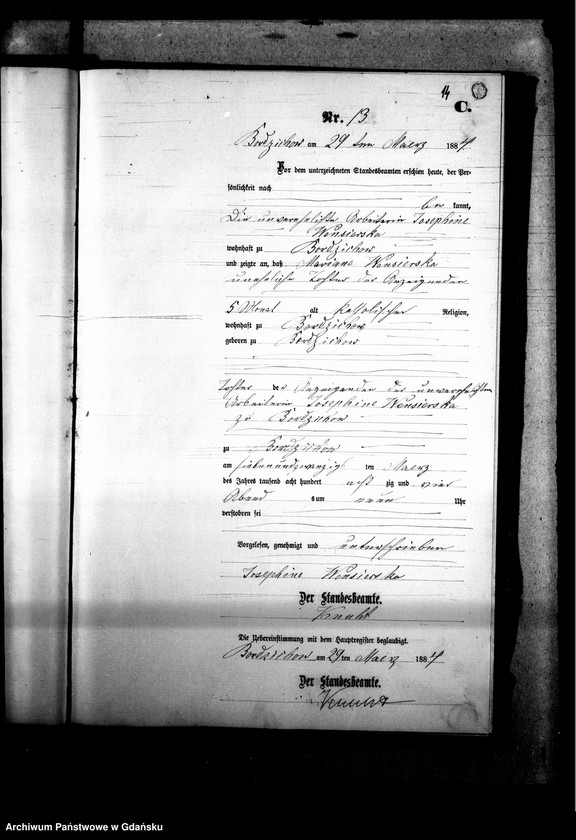 14
C.
Nr. 13.
Bordzichow am 29 ten Maerz 1884.
Vor dem unterzeichneten Standesbeamten erschien heute, der Per-
sönlichkeit nach
be kannt,
Die unverehelichte Arbeiterin Josephine
Wensierska
wohnhaft zu Bordzichow
und zeigte an, daß Marianne Wensierska
uneheliche Tochter der Anzeigenden
5 Monat alt katholischer Religion,
wohnhaft zu Bordzichow
geboren zu Bordzichow
Tochter der Anzeigenden der unverehelichten
Arbeiterin Josephine Wensierska
zu Bordzichow
zu Bordzichow
am siebenundzwanzigs ten Maerz
des Jahres tausend acht hundert acht zig und vier
Abend s um neun Uhr
verstorben sei
Vorgelesen, genehmigt und unterschrieben
Josephine Wensierska
Der Standesbeamte.
Die Uebereinstimmung mit dem Hauptregister beglaubigt.
Bordzichow am 29 ten Maerz 1884
Der Standesbeamte.
Archiwum Państwowe w Gdańsku